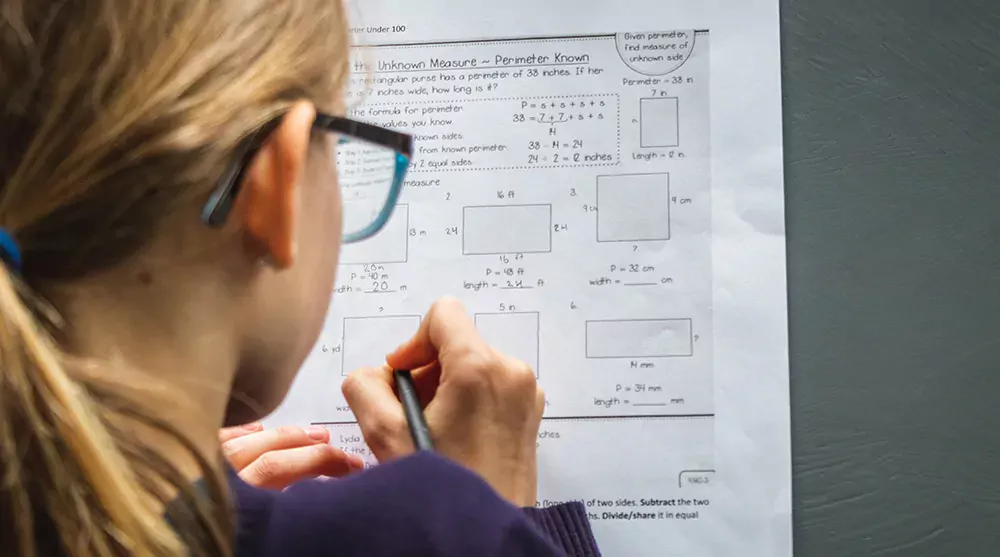 Under 100
Given perimeter,
find measure of
unknown side
the Unknown Measure ~ Perimeter Known
rectangular purse has a perimeter of 38 inches. If her
is 7 inches wide, how long is it?
Perimeter = 38 in
7 in
Length = 12 in
the formula for perimeter.
values you know.
known sides.
from known perimeter.
by 2 equal sides.
P = s + s + s + s
38 = 7 + 7 + s + s
14
38 - 14 = 24
24 ÷ 2 = 12 inches
measure
13 m
20m
P = 40 m
20 m
2.
16 ft
24
24
16 ft
P = 48 ft
length = 24 ft
3.
9 cm
9 cm
?
P = 32 cm
width = ____ cm
?
6 yd
5 in
6.
?
14 mm
P = 34 mm
length = ____ mm
Lydia
If the
of two sides. Subtract the two
Divide/share it in equal